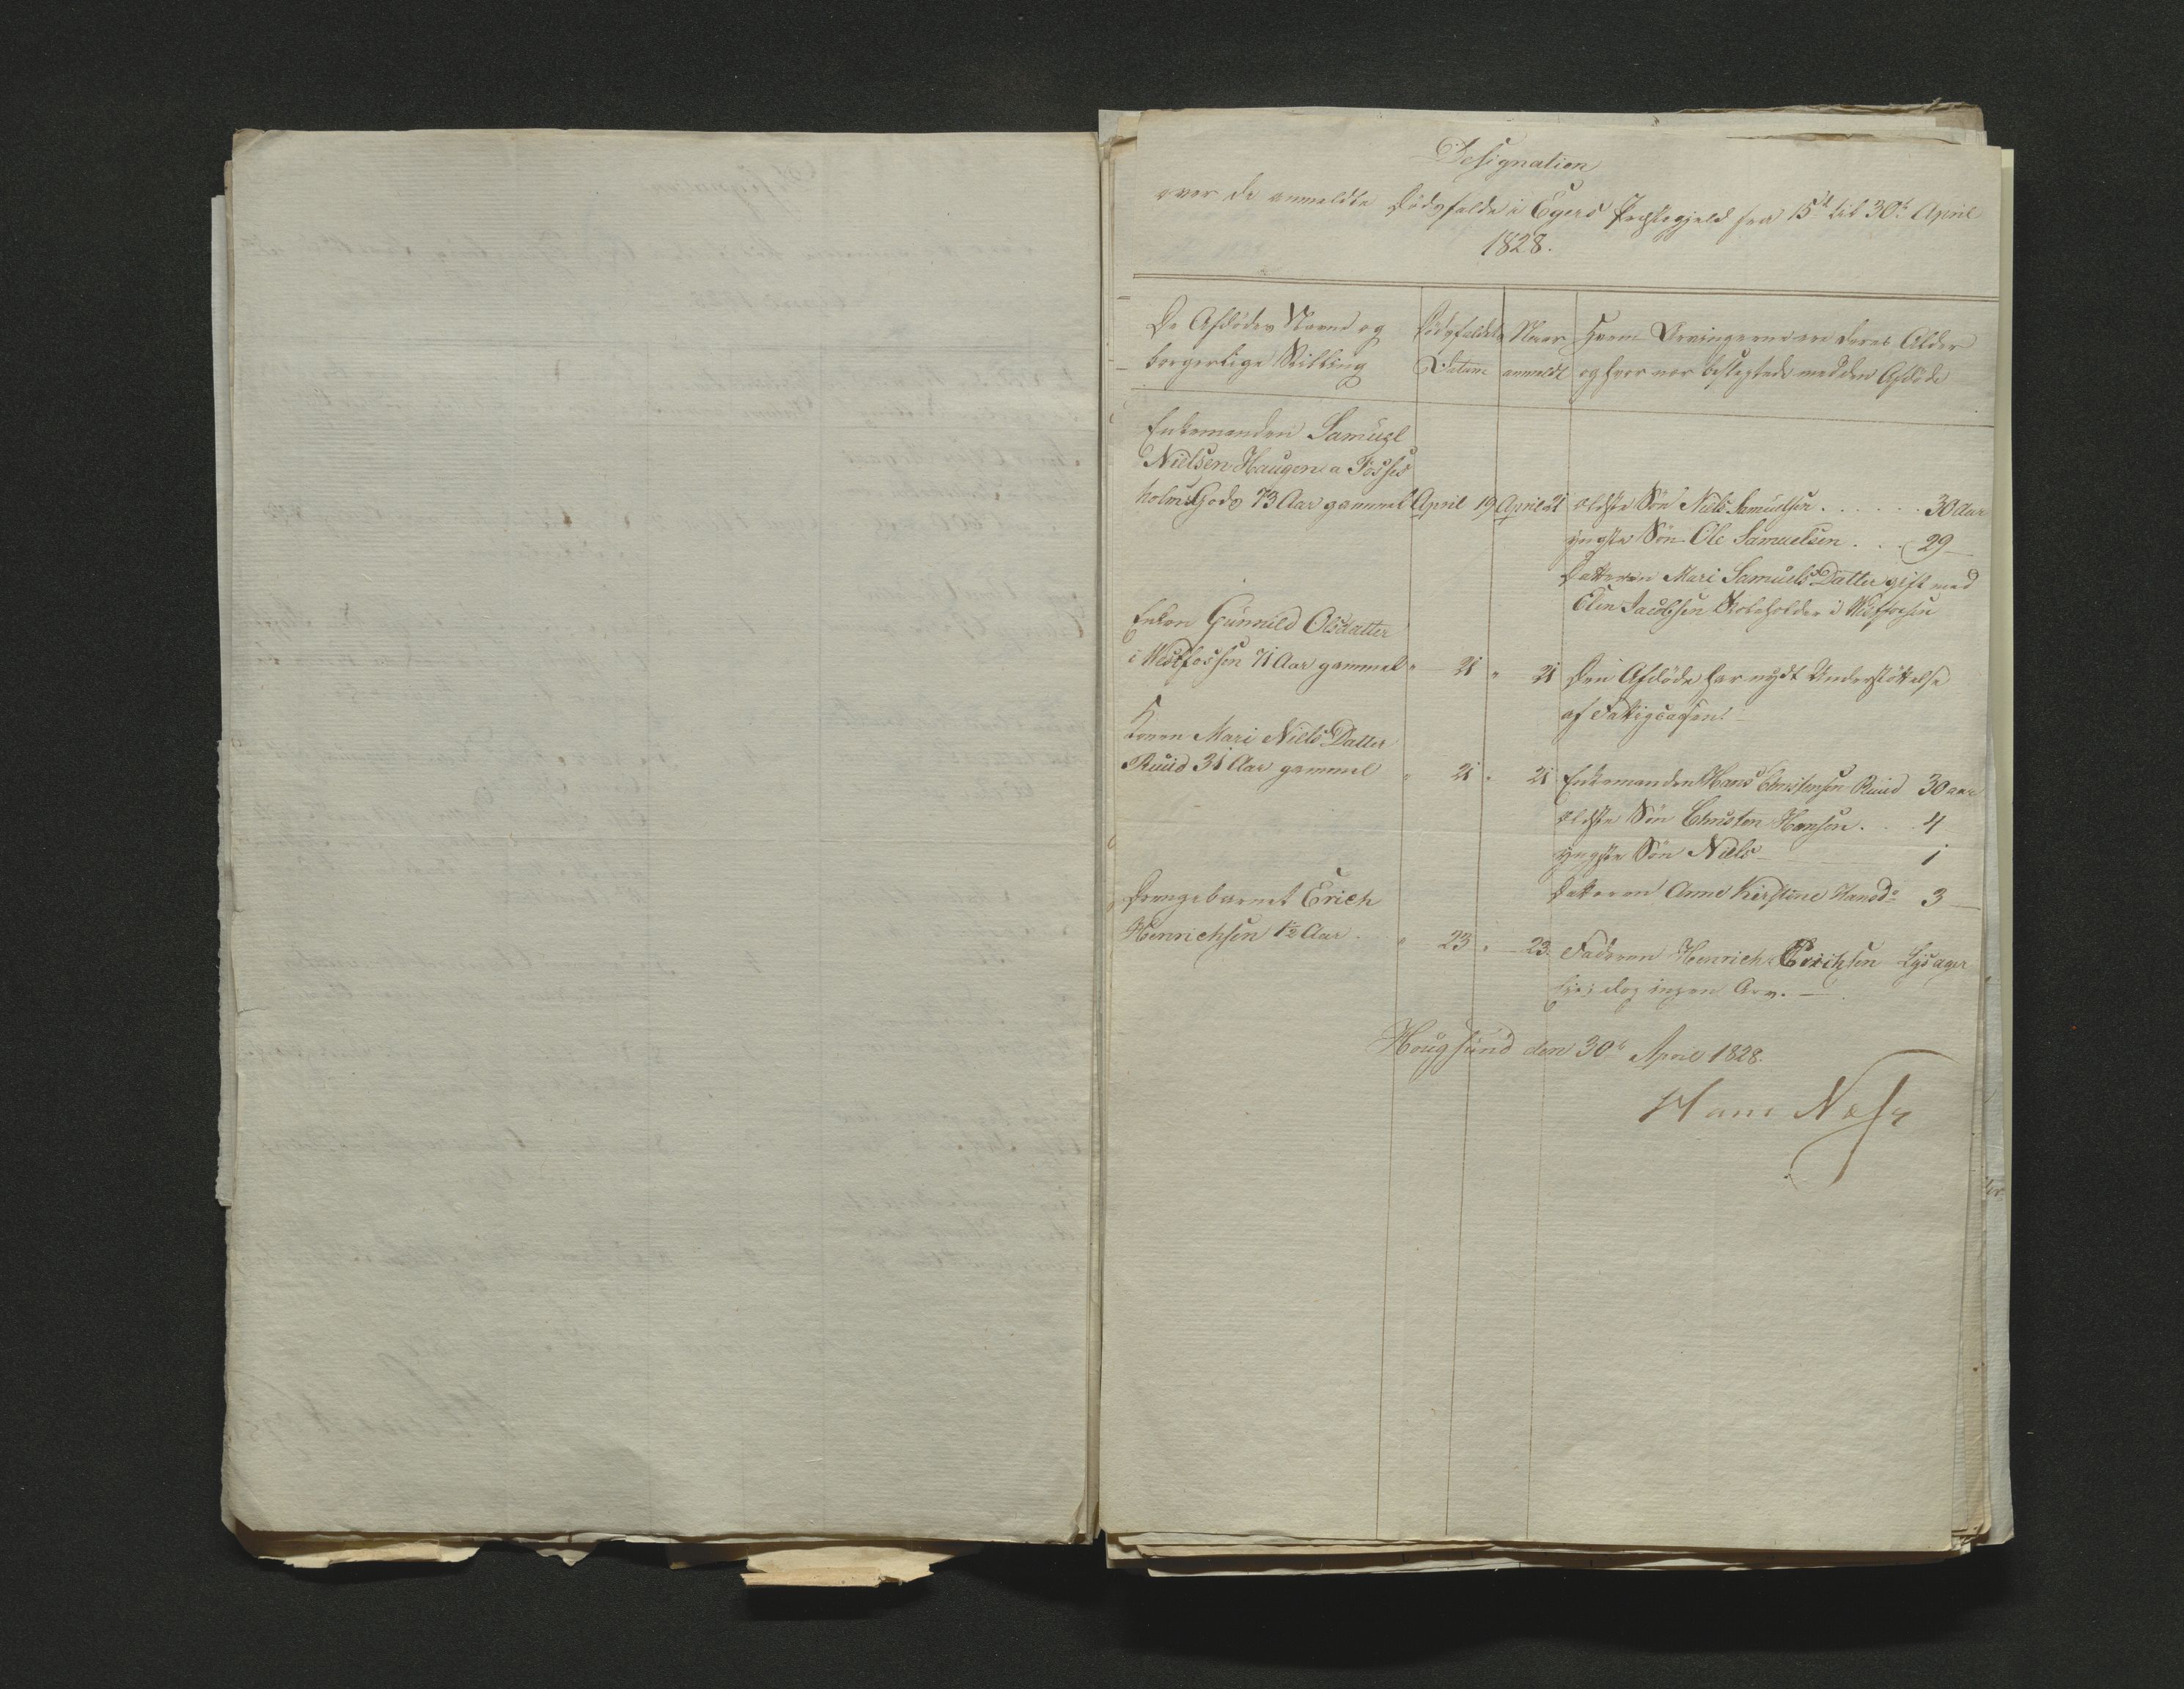 Designation
over de anmeldte Dödsfalde i Egers Præstegjeld fra 15de til 30te April
1828.
De Afdödes Navne og Dödsfaldets Naar Hvem Arvingerne ere deres Alder
borgerlige Stilling Datum anmeldt og hvor nær beslegtede med den Afdöde
Enkemanden Samuel
Nielsen Haugen a Fosses
holms Gods 73 Aar gammel April 19 April 21 ældste Sön Niels Samuelsen . . . . . . 30 Aar
yngste Sön Ole Samuelsen . . . 29 —
Datteren Mari Samuels Datter gift med
Elen Jacobsen Skoleholder i Westfossen
Enken Gunnild Olsdatter
i Westfossen 71 Aar gammel " 21 " 21 Den Afdöde har nydt Understöttelse
af Fattigcassen. —
Konen Mari Niels Datter
Ruud 31 Aar gammel " 21 " 21 Enkemanden Hans Christensen Ruud 30 aar
ældste Sön Christen Hansen . . 4
yngste Sön Niels — 1
Datteren Anne Kirstine Hansd: 3 —
Drengebarnet Erich
Henrichsen 1½ Aar . " 23 " 23. Faderen Henrich Erichsen Lysager
eje; dog ingen Arv. —
Hougsund den 30te April 1828.
Hans Næss